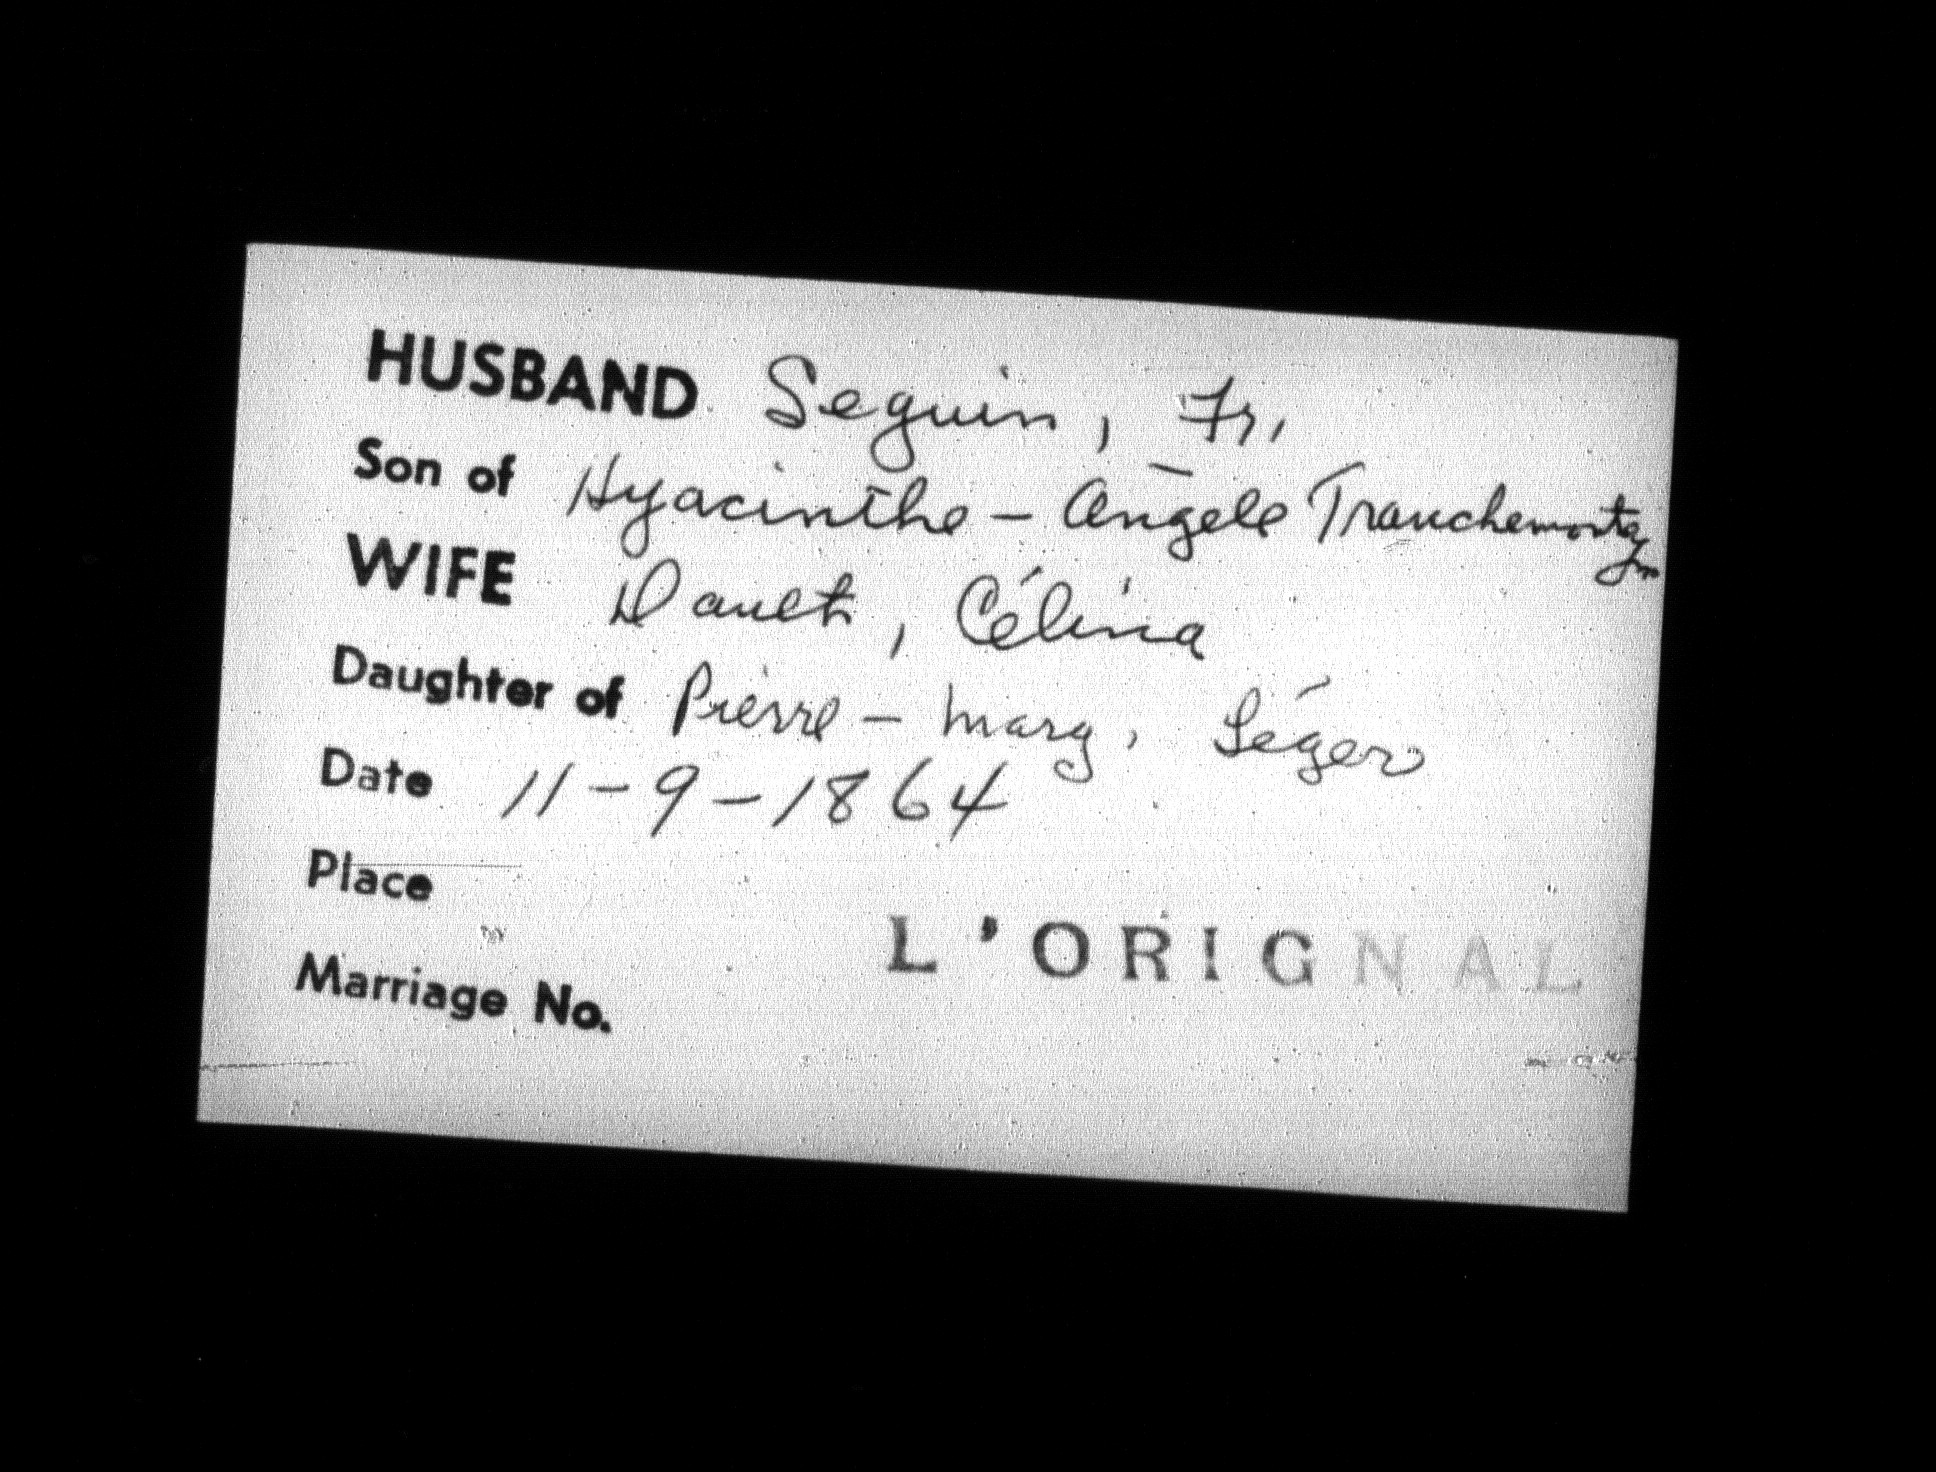 HUSBAND Seguin, Fr.
Son of Hyacinthe - Angele Tranchemontagne
WIFE Daoust, Célina
Daughter of Pierre - Marg. Léger
Date 11-9-1864
Place
L'ORIGNAL
Marriage No.